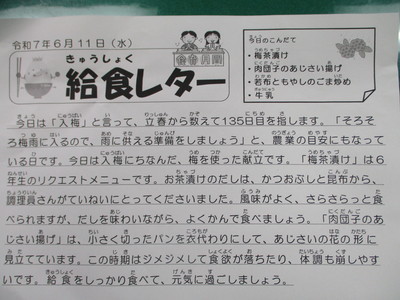 令和7年6月11日(水)
きゅうしょく
給食レター
今日のこんだて
・梅茶漬け
・肉団子のあじさい揚げ
・若布ともやしのごま炒め
・牛乳
今日は「入梅」と言って、立春から数えて135日目を指します。「そろそ
ろ梅雨に入るので、雨に供える準備をしましょう」と、農業の目安にもなって
いる日です。今日は入梅にちなんだ、梅を使った献立です。「梅茶漬け」は6
年生のリクエストメニューです。お茶漬けのだしは、かつおぶしと昆布から、
調理員さんがていねいにとってくださいました。風味がよく、さらさらっと食
べられますが、だしを味わいながら、よくかんで食べましょう。「肉団子のあ
じさい揚げ」は、小さく切ったパンを衣代わりにして、あじさいの花の形に
見立てています。この時期はジメジメして食欲が落ちたり、体調も崩しやす
いです。給食をしっかり食べて、元気に過ごしましょう。